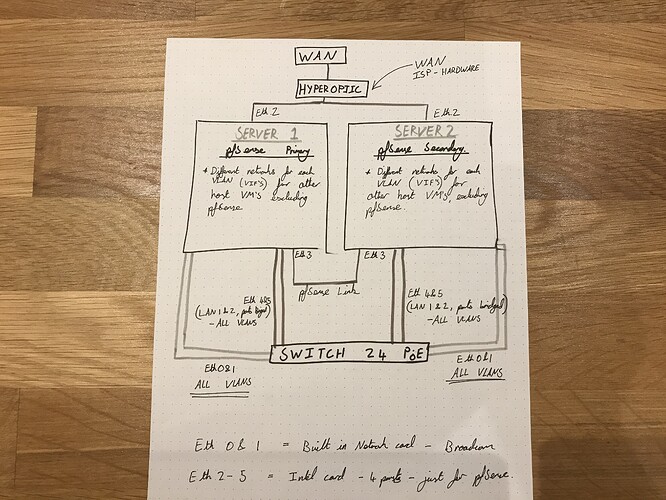 WAN
WAN
ISP - HARDWARE
HYPEROPTIC
Eth 2
Eth 2
SERVER 1
pfSense Primary
* Different networks for each
VLAN (VIF'S) for other
host VM's, excluding
pfSense
SERVER 2
pfSense Secondary.
* Different networks for each
VLAN (VIF'S) for
other host VM'S, excluding
pfSense.
Eth3
Eth3
pfSense Link
Eth 4&5
(LAN 1 & 2, ports
- ALL VLANS
Eth 4&5
(LAN 1 & 2, ports bridged)
- ALL VLANS
SWITCH 24 PoE
Eth 0&1
ALL VLANS
Eth 0&1
ALL VLANS
Eth 0 & 1 = Built in Network card - Broadcom
Eth 2 - 5 = Intel card - 4 ports - just for pfSense.